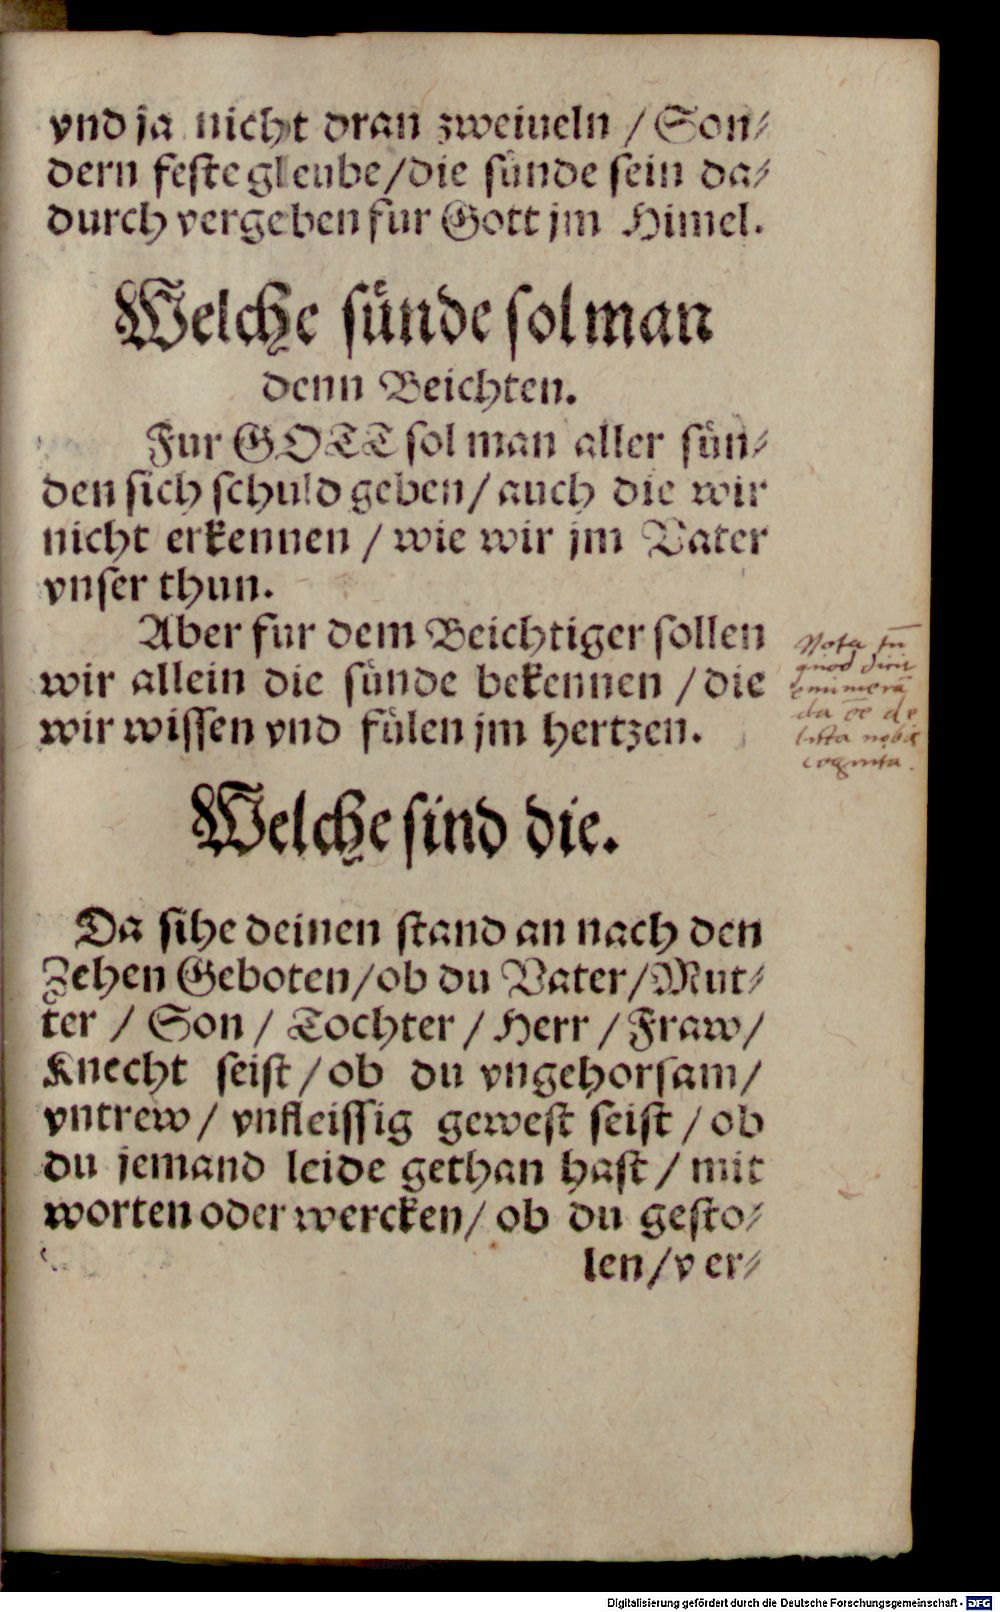 vnd ja nicht dran zweiueln / Son⸗
dern feste gleube/die sünde sein da⸗
durch vergeben fur Gott jm Himel.
Welche sünde sol man
denn Beichten.
Fur GOTT sol man aller sün⸗
den sich schuld geben/ auch die wir
nicht erkennen / wie wir jm Vater
vnser thun.
Aber fur dem Beichtiger sollen
wir allein die sünde bekennen / die
wir wissen vnd fülen jm hertzen.
Nota tn̄
quod dicit
enumerā
da eē de
licta nobis
cognita.
Welche sind die.
Da sihe deinen stand an nach den
Zehen Geboten/ob du Vater/Mut⸗
ter / Son / Tochter / Herr / Fraw/
Knecht seist / ob du vngehorsam/
vntrew/ vnfleissig gewest seist / ob
du jemand leide gethan hast / mit
worten oder wercken/ ob du gesto⸗
len/ver⸗
Digitalisierung gefördert durch die Deutsche Forschungsgemeinschaft - DFG